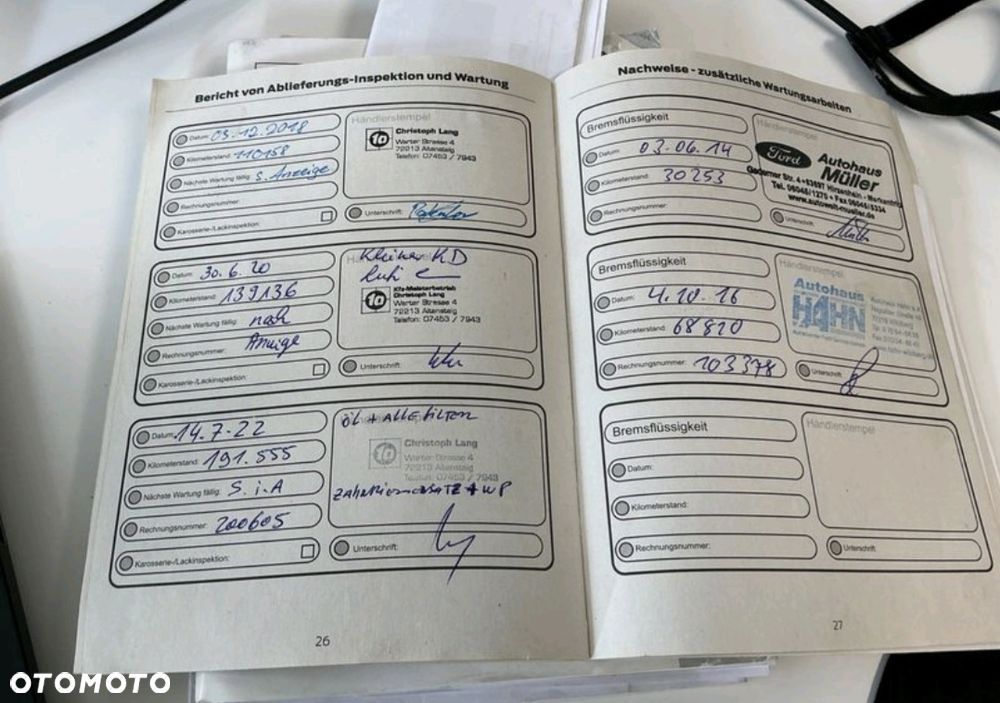 Bericht von Ablieferungs-Inspektion und Wartung
Datum: 03.12.2018
Kilometerstand: 110158
Nächste Wartung fällig: S. Anzeige
Rechnungsnummer:
Karosserie-/Lackinspektion:
Händlerstempel
1a
Christoph Lang
Warter Strasse 4
72213 Altensteig
Telefon: 07453 / 7943
Unterschrift:
Datum: 30.6.20
Kilometerstand: 139136
Nächste Wartung fällig: nach
Rechnungsnummer: Anzeige
Karosserie-/Lackinspektion:
KD
1a
Kfz-Meisterbetrieb
Christoph Lang
Warter Strasse 4
72213 Altensteig
Telefon: 07453 / 7943
Unterschrift:
Datum: 14.7.22
Kilometerstand: 191.555
Nächste Wartung fällig: S.i.A
Rechnungsnummer: 200605
Karosserie-/Lackinspektion:
ÖL + ALLE FILTER
1a
Christoph Lang
Warter Strasse 4
72213 Altensteig
Telefon: 07453 / 7943
+ WP
Unterschrift:
26
Nachweise - zusätzliche Wartungsarbeiten
Bremsflüssigkeit
Datum: 03.06.14
Kilometerstand: 30253
Rechnungsnummer:
Händlerstempel
Ford
Autohaus
Müller
Str. 4 • 63697 Hirzenhain - Merkenfritz
Tel. 06045/1275 • Fax 06045/5334
www.autowelt-mueller.de
Unterschrift:
Bremsflüssigkeit
Datum: 4.10.16
Kilometerstand: 68820
Rechnungsnummer: 103378
Händlerstempel
Autohaus
HAHN
Unterschrift:
Bremsflüssigkeit
Datum:
Kilometerstand:
Rechnungsnummer:
Händlerstempel
Unterschrift:
27
OTOMOTO